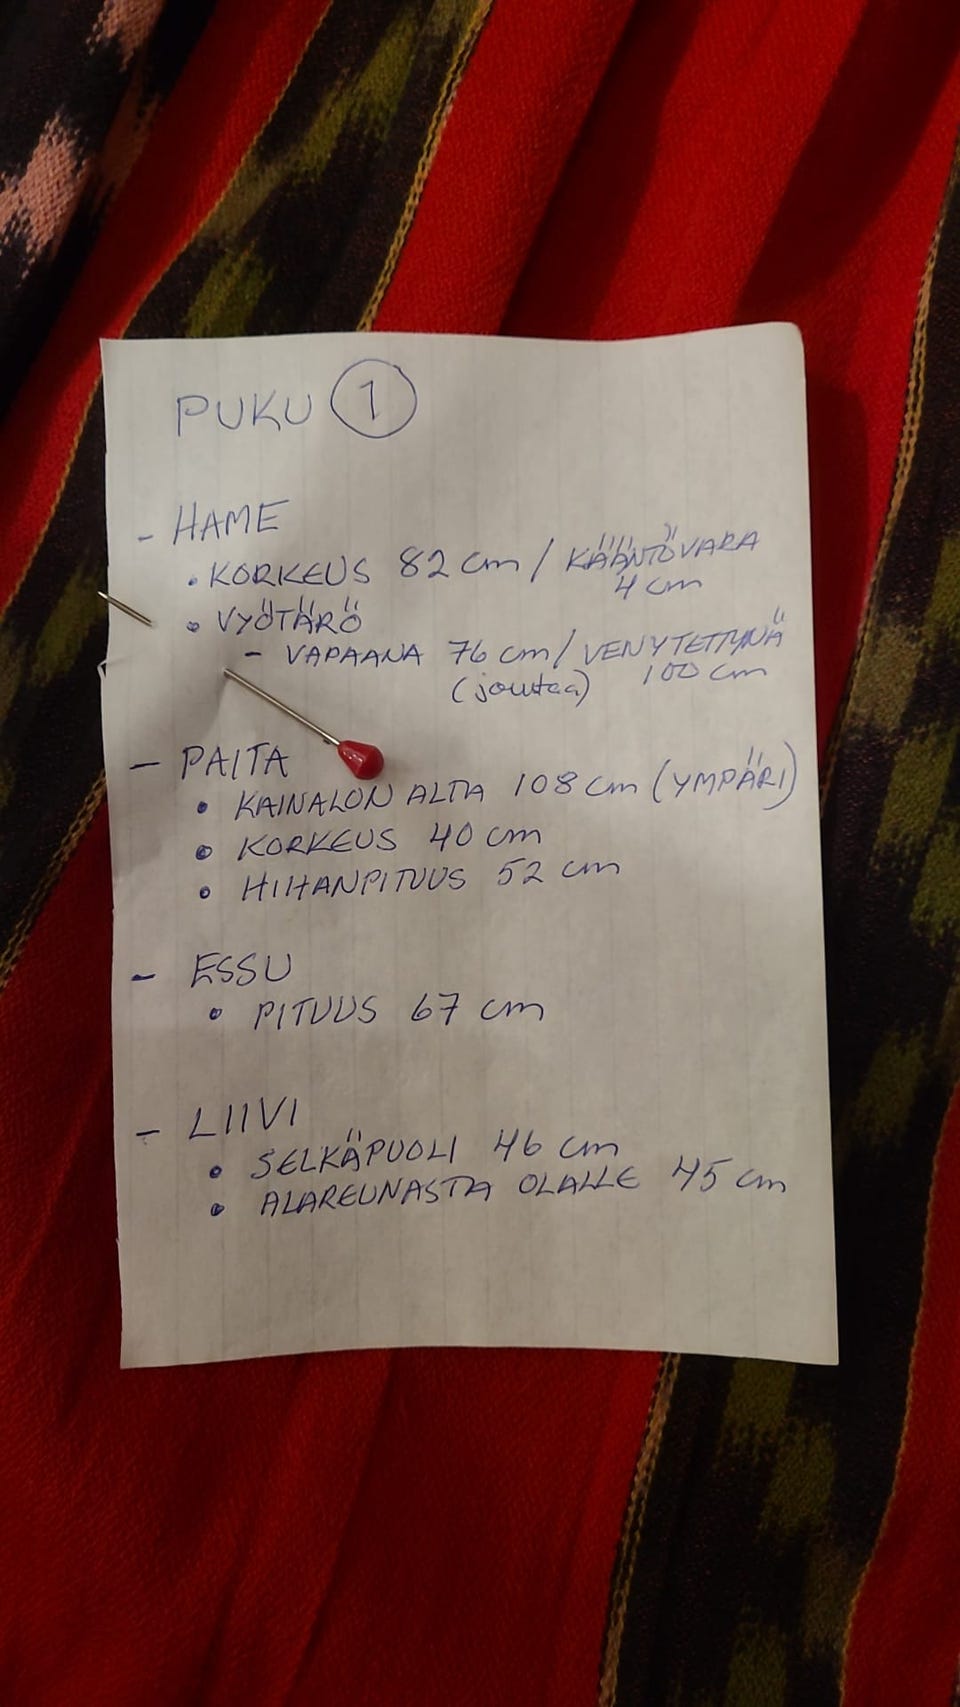 PUKU 1
- HAME
• KORKEUS 82 cm / KÄÄNTÖVARA
4 cm
• VYÖTÄRÖ
- VAPAANA 76 cm / VENYTETTYNÄ
(joustaa) 100 cm
- PAITA
• KAINALON ALTA 108 cm (YMPÄRI)
• KORKEUS 40 cm
• HIHANPITUUS 52 cm
- ESSU
• PITUUS 67 cm
- LIIVI
• SELKÄPUOLI 46 cm
• ALAREUNASTA OLALLE 45 cm